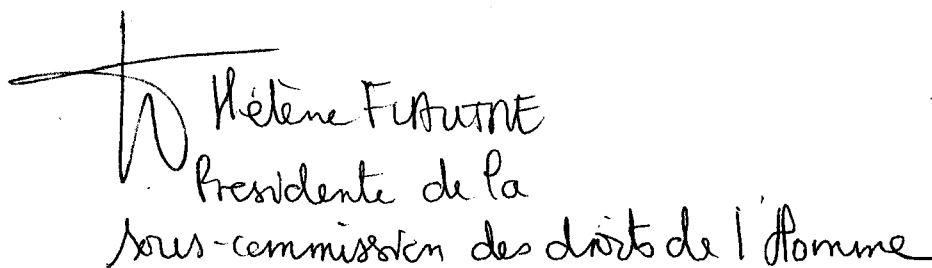 Hélène FLAUTRE
Présidente de la
sous-commission des droits de l'Homme